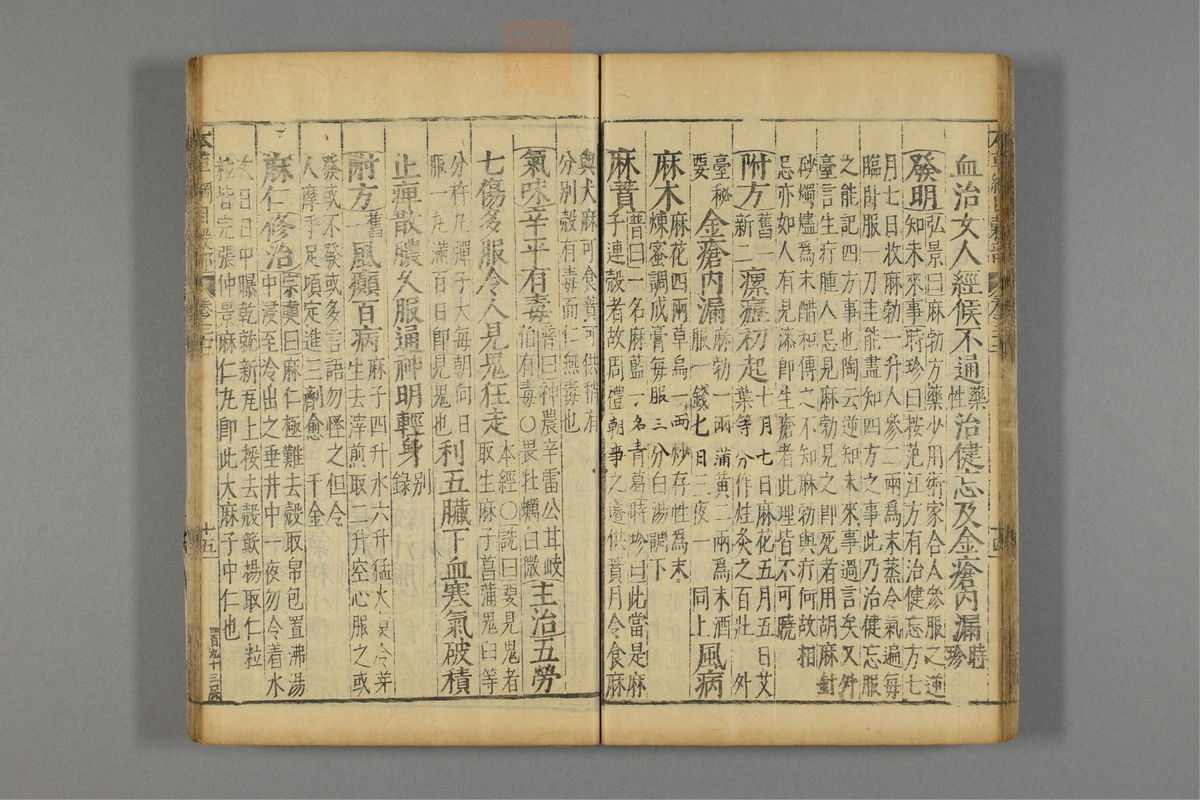 血治女人經候不通藥性治健忘及金瘡內漏時珍
發明弘景曰麻勃方藥少用術家合人參服之逆
知未來事時珍曰按范汪方有治健忘方七
月七日收麻勃一升人參二兩爲末蒸令氣遍每
臨臥服一刀圭能盡知四方之事此乃治健忘服
之能記四方事也陶云逆知未來事過言矣又外
臺言生疔腫人忌見麻勃見之卽死者用胡麻針
砂燭燼爲末醋和傅之不知麻勃與疔何故相
忌亦如人有見漆卽生瘡者此理皆不可曉
附方舊一新二瘰癧初起七月七日麻花五月五日艾
葉等分作炷灸之百壯 外
臺秘要金瘡內漏麻勃一兩蒲黃二兩爲末酒
服一錢七日三夜一 同上風病
麻木麻花四兩草烏一兩炒存性爲末
煉蜜調成膏每服三分白湯調下
麻蕡普曰一名麻藍一名青葛時珍曰此當是麻
子連殼者故周禮朝事之籩供蕡月令食麻
與犬麻可食蕡可供稍有
分別殼有毒而仁無毒也
氣味辛平有毒普曰神農辛雷公甘岐
伯有毒○畏牡蠣白微主治五勞
七傷多服令人見鬼狂走本經○詵曰要見鬼者
取生麻子菖蒲鬼臼等
分杵丸彈子大每朝向日
服一丸滿百日卽見鬼也利五臟下血寒氣破積
止痺散膿久服通神明輕身別錄
附方舊一風癲百病麻子四升水六升猛火煑令芽
生去滓煎取二升空心服之或
發或不發或多言語勿怪之但令
人摩手足頂定進三劑愈 千金
麻仁修治宗奭曰麻仁極難去殼取帛包置沸湯
中浸至冷出之垂井中一夜勿令着水
次日日中曝乾就新瓦上挼去殼簸揚取仁粒
粒皆完張仲景麻仁丸卽此大麻子中仁也